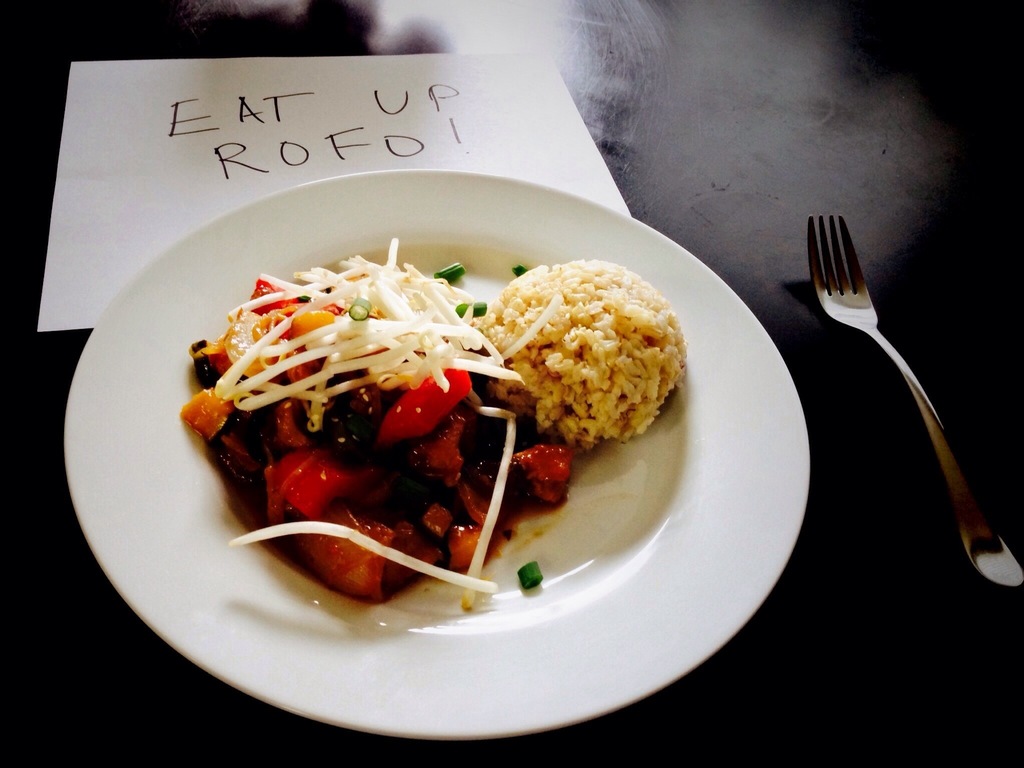 EAT UP
ROFO!